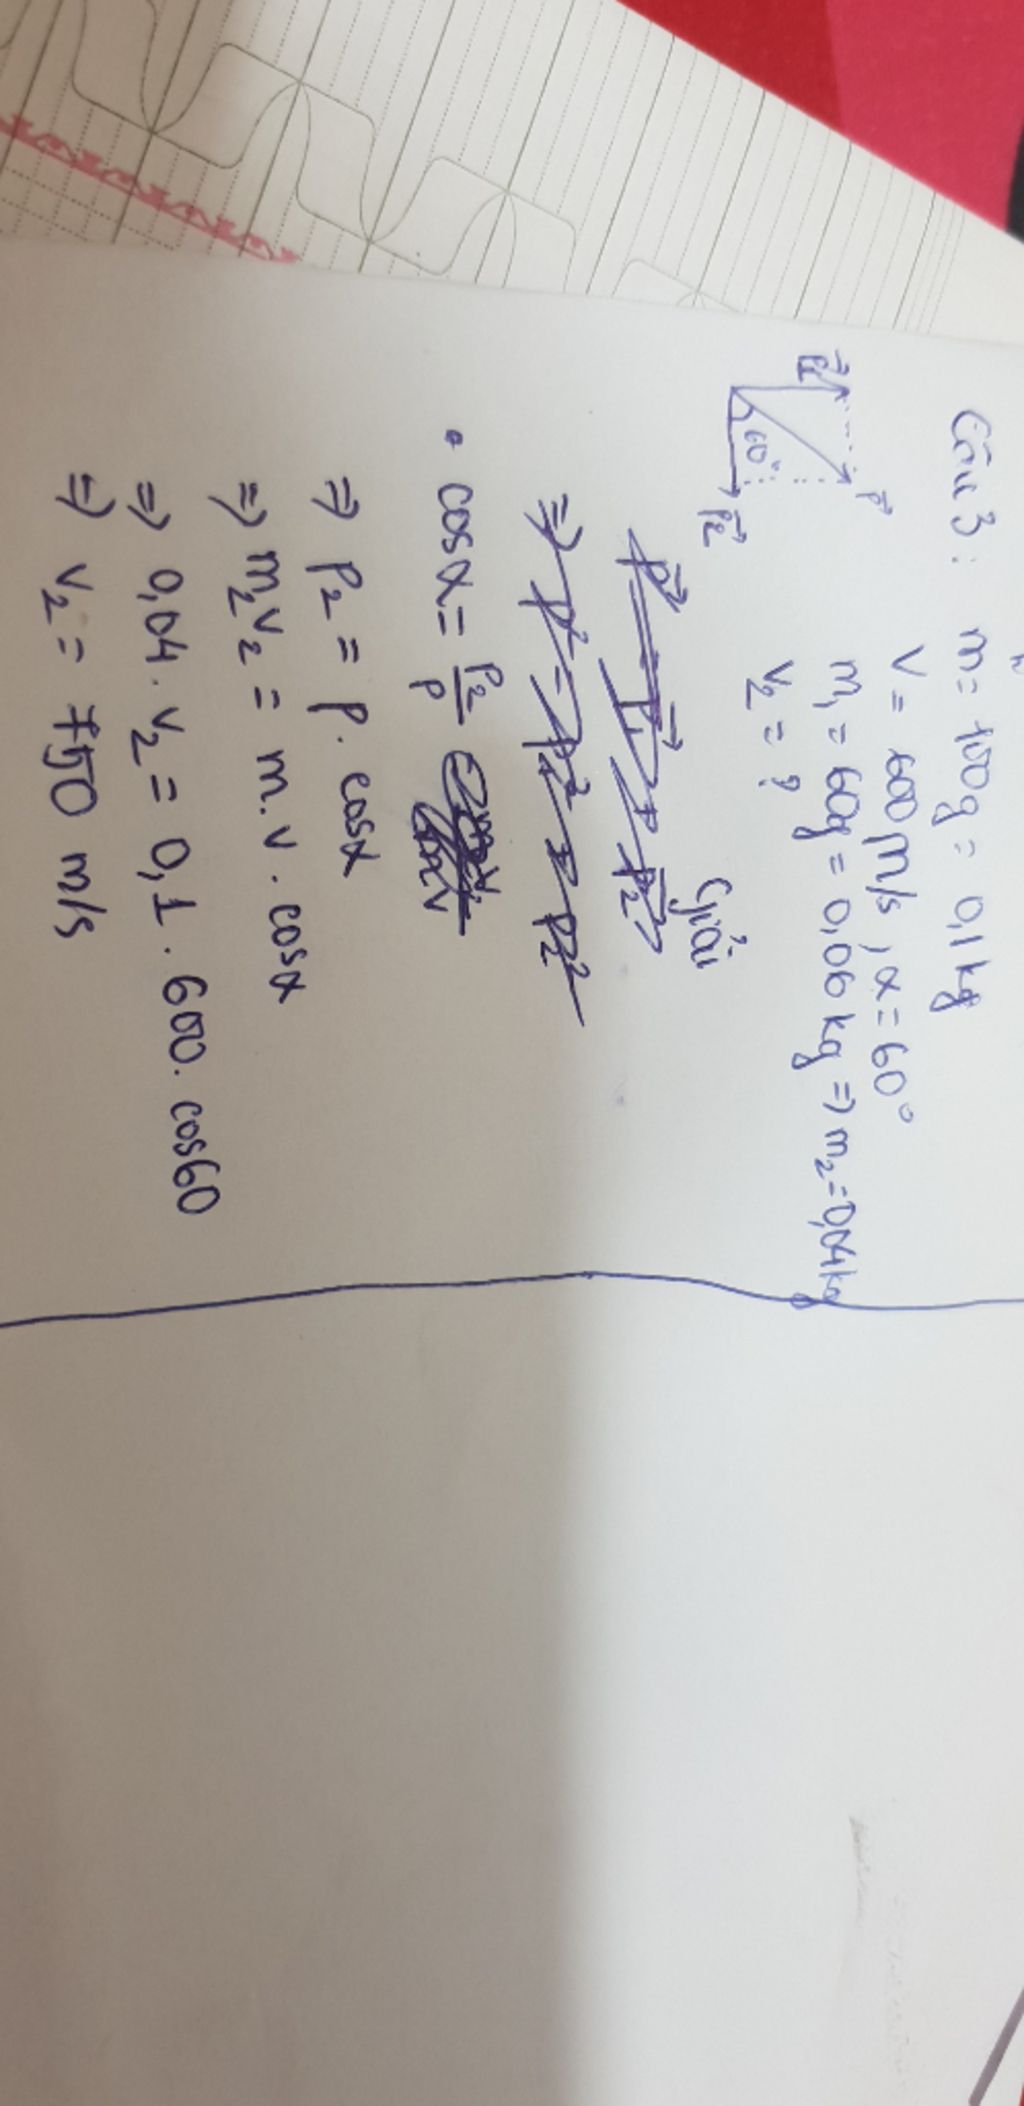 Câu 3: m = 100g = 0,1kg
v = 600 m/s, α = 60°
m₁ = 60g = 0,06 kg ⇒ m₂ = 0,04kg
v₂ = ?
p⃗
60°
p⃗₂
Giải
p⃗ = p⃗₁ + p⃗₂
⇒ p² = p₁² + p₂²
• cosα = p₂/p
⇒ p₂ = p. cosα
⇒ m₂v₂ = m.v. cosα
⇒ 0,04. v₂ = 0,1. 600. cos60
⇒ v₂ = 750 m/s